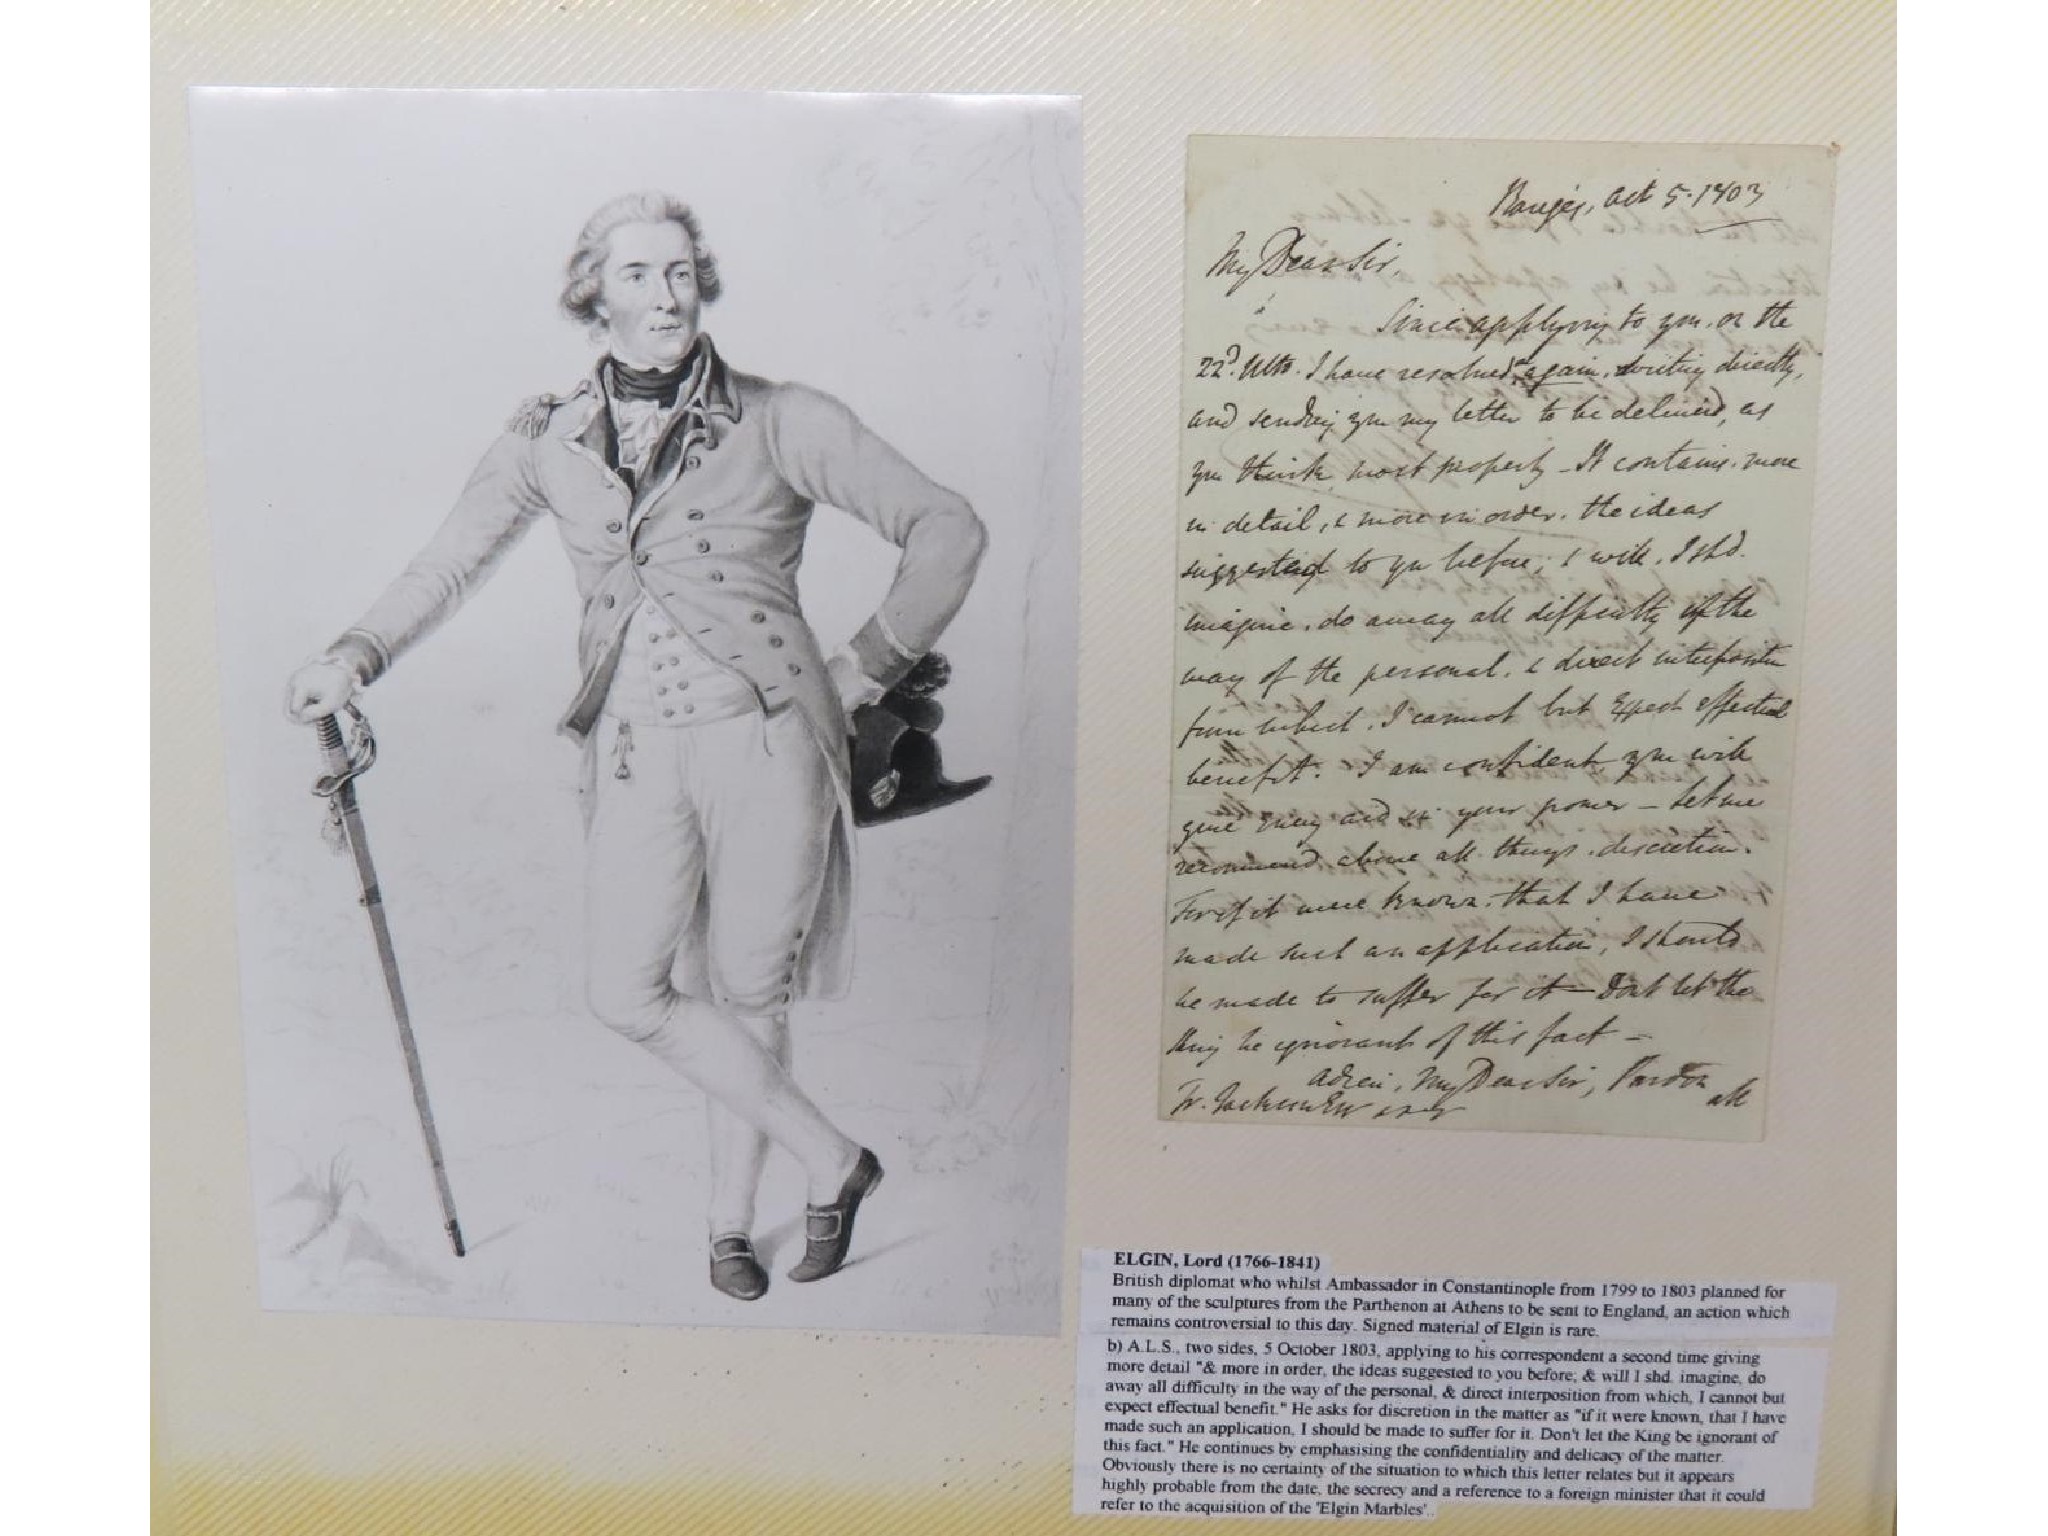 Oct 5. 1803
My Dear Sir,
Since applying to you, on the
22d. Ulto. I have resolved again, writing directly,
and sending you my letter to be delivered, as
you think most properly – It contains more
in detail, & more in order, the ideas
suggested to you before; & will, I shd.
imagine, do away all difficulty in the
way of the personal, & direct interposition
from which, I cannot but Expect effectual
benefit. I am confident, you will
give every aid in your power – Let me
recommend above all things, discretion.
For if it were known, that I have
made such an application, I should
be made to suffer for it – Dont let the
King be ignorant of this fact –
Adieu, My Dear Sir, Pardon
all
ELGIN, Lord (1766-1841)
British diplomat who whilst Ambassador in Constantinople from 1799 to 1803 planned for
many of the sculptures from the Parthenon at Athens to be sent to England, an action which
remains controversial to this day. Signed material of Elgin is rare.
b) A.L.S., two sides, 5 October 1803, applying to his correspondent a second time giving
more detail "& more in order, the ideas suggested to you before; & will I shd. imagine, do
away all difficulty in the way of the personal, & direct interposition from which, I cannot but
expect effectual benefit." He asks for discretion in the matter as "if it were known, that I have
made such an application, I should be made to suffer for it. Don't let the King be ignorant of
this fact." He continues by emphasising the confidentiality and delicacy of the matter.
Obviously there is no certainty of the situation to which this letter relates but it appears
highly probable from the date, the secrecy and a reference to a foreign minister that it could
refer to the acquisition of the 'Elgin Marbles'..